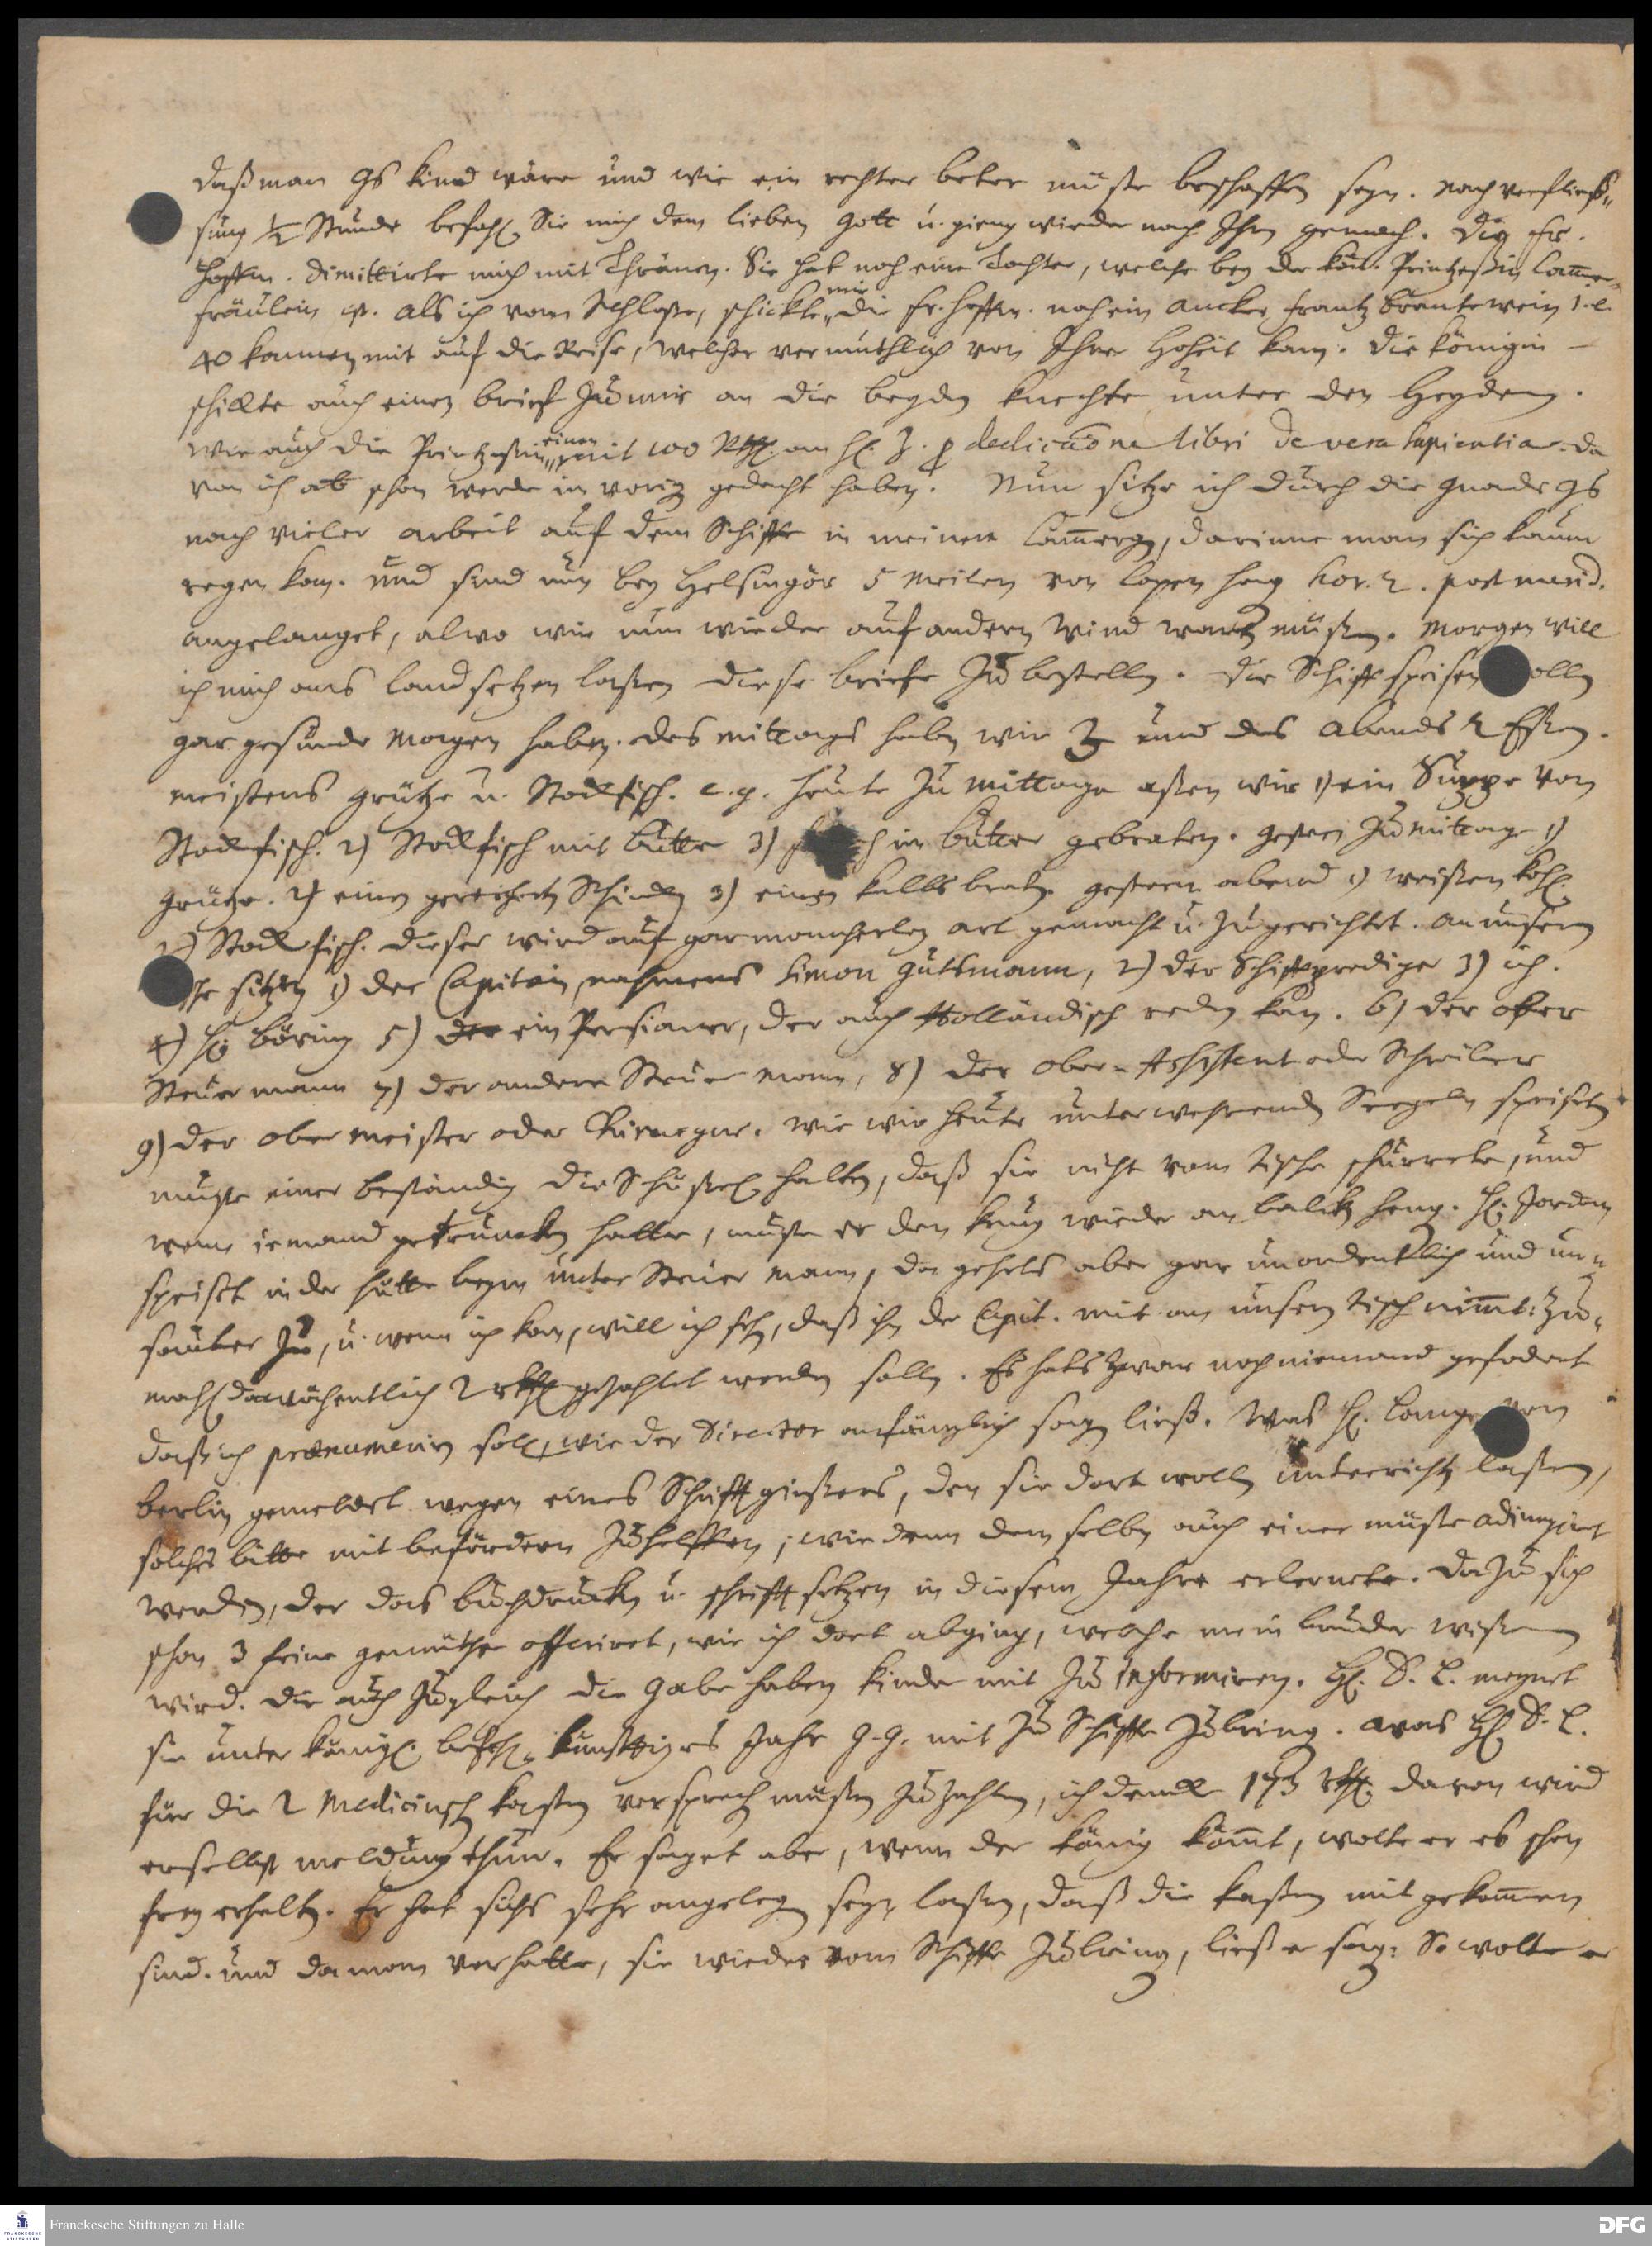 daß man Gs Kind wäre und wie ein rechter beter müste beschaffen seyn. nach verfließ-
sung ½ Stunde befahl Sie mich dem lieben Gott u. gieng wieder nach Ihrem gemach. die Fr.
Hoffm. dimittirte mich mit Thränen. Sie hat noch eine Tochter, welche bey der Kön. Printzeßin Cammer-
fräulein ist. Als ich vom Schloße, schickte mir die Fr. Hoffm. noch ein Ancker Frantz Brantewein i.e.
40 Kannen mit auf die Reise, welcher vermuthlich von Ihrer Hoheit kam. die Königin
schickte auch einen brief zu mir an die beyden Knechte unter den Heyden.
Wie auch die Printzeßin einen mit 100 Rthl. an H. Z. p dedicatione libri de vera sapientia. da
von ich schon werde im vorig gedacht haben. Nun sitze ich durch die Gnade Gs
nach vieler arbeit auf dem Schiffe in meinem Cämmergen, darinne man sich kaum
regen kan. Und sind nun bey Helsingör 5 Meilen von Copenhag hor. 2. post merid.
angelanget, alwo wir nun wieder auf andern Wind warten müßen. Morgen will
ich mich ans land setzen laßen diese briefe zu bestellen. Die Schiff speisen ollen
gar gesunde Magen haben. des mittags haben wir 3 und des Abends 2 Eßen.
meistens Grütze u. Stockfisch. e.g. heute zu Mittage aßen wir 1) ein Suppe von
Stockfisch. 2) Stockfisch mit Butter 3) ch in butter gebraten. gestern zu mittage 1)
Grütze. 2) einen gereichert Schincken 3) einen kalbsbraten gestern abend 1) weißen Kohl.
2) Stockfisch. dieser wird auf gar mancherley art gemacht u. zugerichtet. an unserm
sche sitzen 1) der Capitain, nahmens Simon Gutsmann, 2) der Schiffsprediger 3) ich.
4) H. Böving 5) der ein Persianer, der auch Holländisch reden kan. 6) der ober
Steuermann 7) der andere Steuermann, 8) der Ober-Assistent oder Schreiber
9) der Obermeister oder Chirurgus. Wie wir heute unter wehrenden Seegeln speiseten
muste einer beständig die Schüßel halten, daß sie nicht vom tische schurrete, und
wenn iemand getruncken hatte, muste er den krug wieder an balcken heng. H. Jordan
speiset in der hütte beym unter Steuer Mann, da gehets aber gar unordentlich und un-
sauber zu, u. wenn ich kan, will ich sehen, daß ihn der Capit. mit an unsern tisch nimmt: zu-
mahl da wöchentlich 2 rthl gezahlet werden sollen. Es hats zwar noch niemand gefodert
daß ich praenumerin soll, wie der Director anfänglich sagen ließ. Was H. Lange von
Berlin gemeldet wegen eines Schriftgießers, den sie dort wollen unterrichten laßen,
solches bitte mit befördern zu helffen; wie denn dem selben auch einer müste adiungiret
werden, der das buchdrucken u. schrift setzen in diesem Jahre erlernete. Dazu sich
schon 3 feine gemüther offeriret, wie ich dort abging, welche mein bruder wißen
wird. die auch zugleich die Gabe haben kinder mit zu informiren. H. D. L. meynet
sie unter königl. befehl künfftiges Jahr g. G. mit zu Schiffe zubring. was H. D. L.
für die 2 Medicinisch kasten versprechen müßen zu zahlen, ich dencke 173 rthl. davon wird
er selbst meldung thun. Er saget aber, wenn der könig kömmt, wolte er es schon
frey erhalten. Er hat sichs sehr angelegen seyn laßen, daß die kasten mit gekommen
sind. und da man vorhatte, sie wieder vom Schiffe zubring, ließ er sag: So wolte er
Franckesche Stiftungen zu Halle
DFG